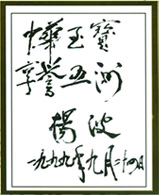 中華玉寶
享譽五洲
楊波
一九九九年九月二十四日